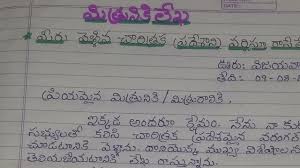 మిత్రునికి లేఖ
* మీరు వెళ్ళిన చారిత్రక ప్రదేశాన్ని వర్ణిస్తూ
ఊరు: విజయవా
తేది: 09-08-
ప్రియమైన మిత్రునికి / మిత్రురాలికి,
ఇక్కడ అందరూ క్షేమం. నేను నా కు
సభ్యులతో కలిసి చారిత్రక ప్రదేశమైన
చూడటానికి వెళ్ళాను. దానియొక్క ముఖ్య విశేషాల
తెలియజేయటానికి లేఖ రాస్తున్నాను.